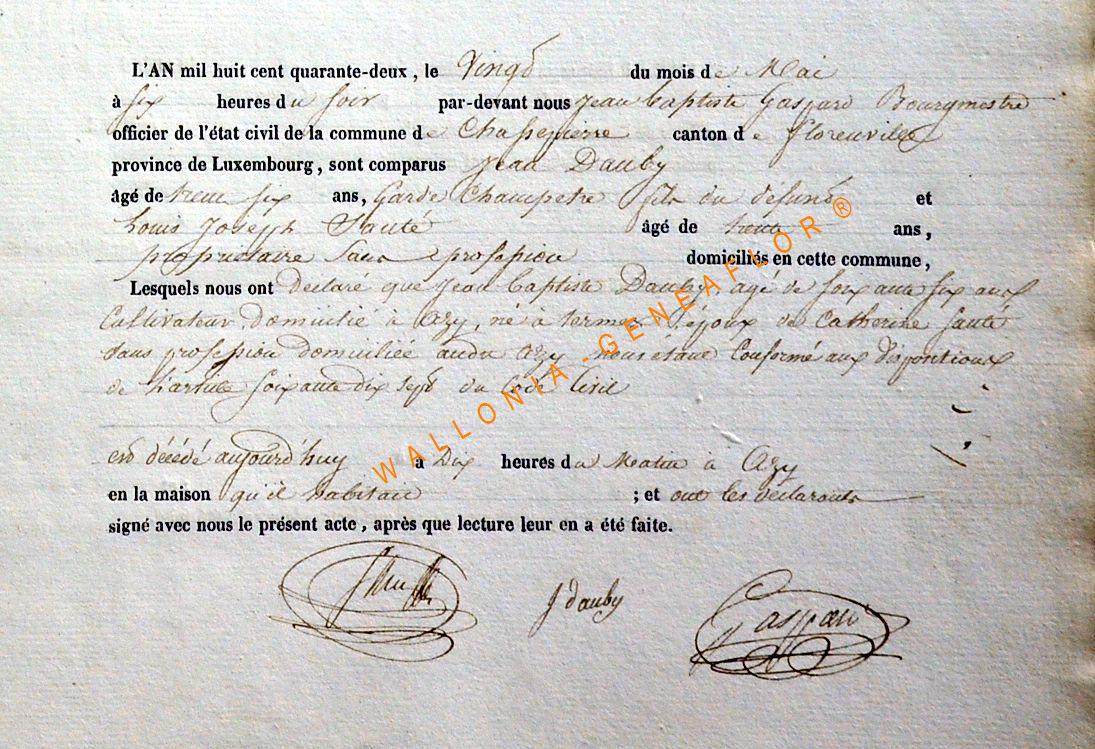 L'AN mil huit cent quarante-deux, le Vingt du mois de Mai
à six heures du soir par-devant nous Jean Baptiste Gaspard Bourgmestre
officier de l'état civil de la commune de Chassepierre canton de florenville
province de Luxembourg, sont comparus Jean Dauby
âgé de trente six ans, Garde Champetre fils du défunt et
Louis Joseph Santé âgé de trente ans,
propriétaire sans profession domiciliés en cette commune,
Lesquels nous ont declaré que Jean Baptiste Dauby, agé de soixante six ans
Cultivateur, domicilié à Azy, né à termes Epoux de Catherine Santé
sans profession domiciliée audit Azy nous étant Conformé aux dispositions
de l'article soixante dix sept du Code Civil
est décédé aujourd'huy à Dix heures du Matin à Azy
en la maison qu'il habitait ; et ont les declarants
signé avec nous le présent acte, après que lecture leur en a été faite.
J dauby Gaspard
WALLONIA-GENEAFLOR ®